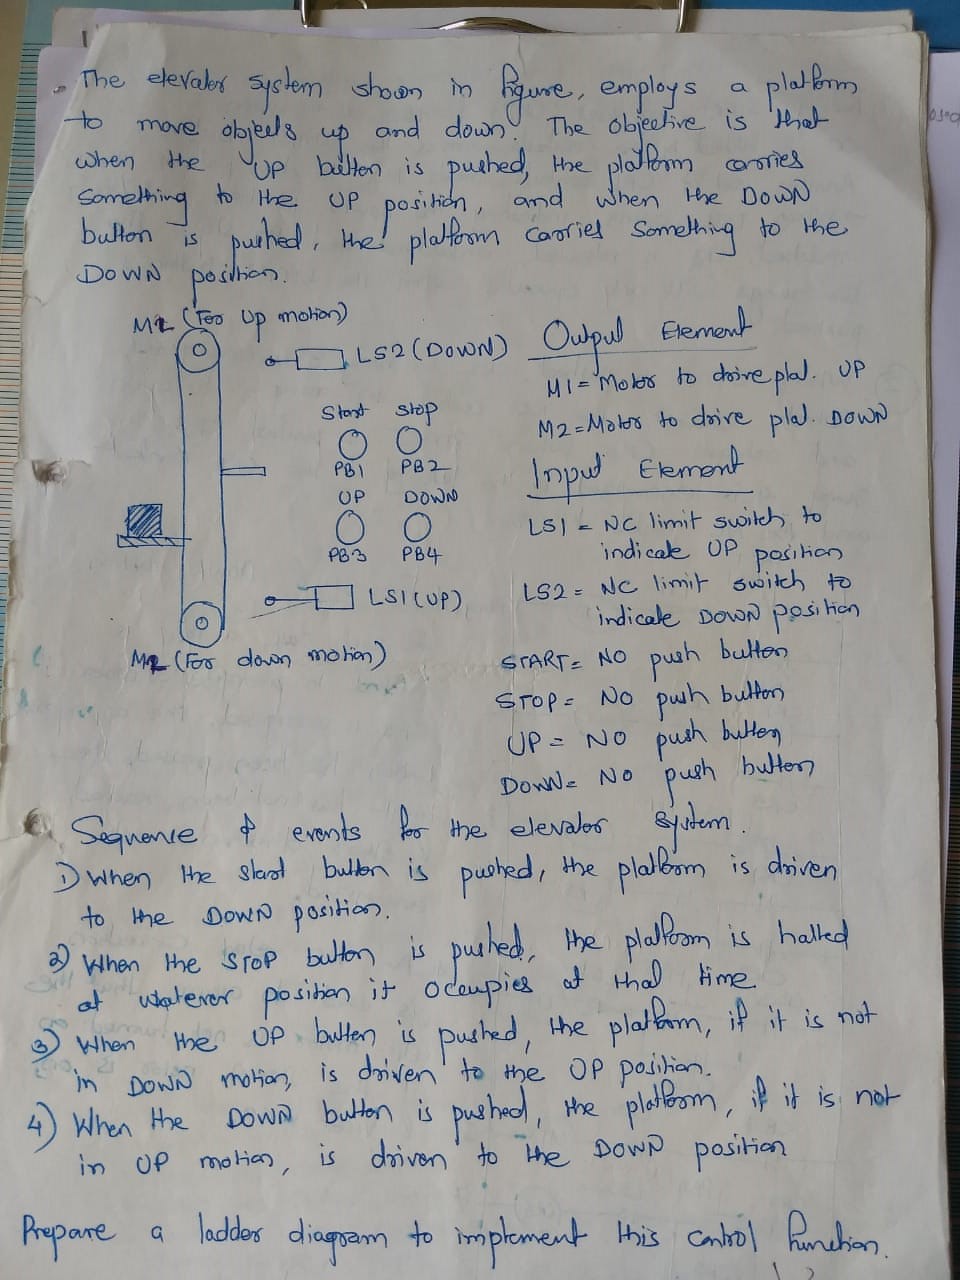 The elevator system shown in figure, employs a platform
to move objects up and down. The objective is that
when the UP button is pushed, the platform carries
something to the UP position, and when the DOWN
button is pushed, the platform carries something to the
DOWN position.
(For Up motion)
LS2 (DOWN)
Output Element
M1 = Motor to drive plat. UP
M2 = Motor to drive plat. DOWN
Start Stop
PB1 PB2
UP DOWN
PB3 PB4
Input Element
LS1 = NC limit switch to
indicate UP position
LS2 = NC limit switch to
indicate DOWN position
LS1 (UP)
(For down motion)
START = NO push button
STOP = NO push button
UP = NO push button
DOWN = NO push button
Sequence of events for the elevator system.
1) When the start button is pushed, the platform is driven
to the DOWN position.
2) When the STOP button is pushed, the platform is halted
at whatever position it occupies at that time
3) When the UP button is pushed, the platform, if it is not
in DOWN motion, is driven to the UP position.
4) When the DOWN button is pushed, the platform, if it is not
in UP motion, is driven to the DOWN position
Prepare a ladder diagram to implement this control function.